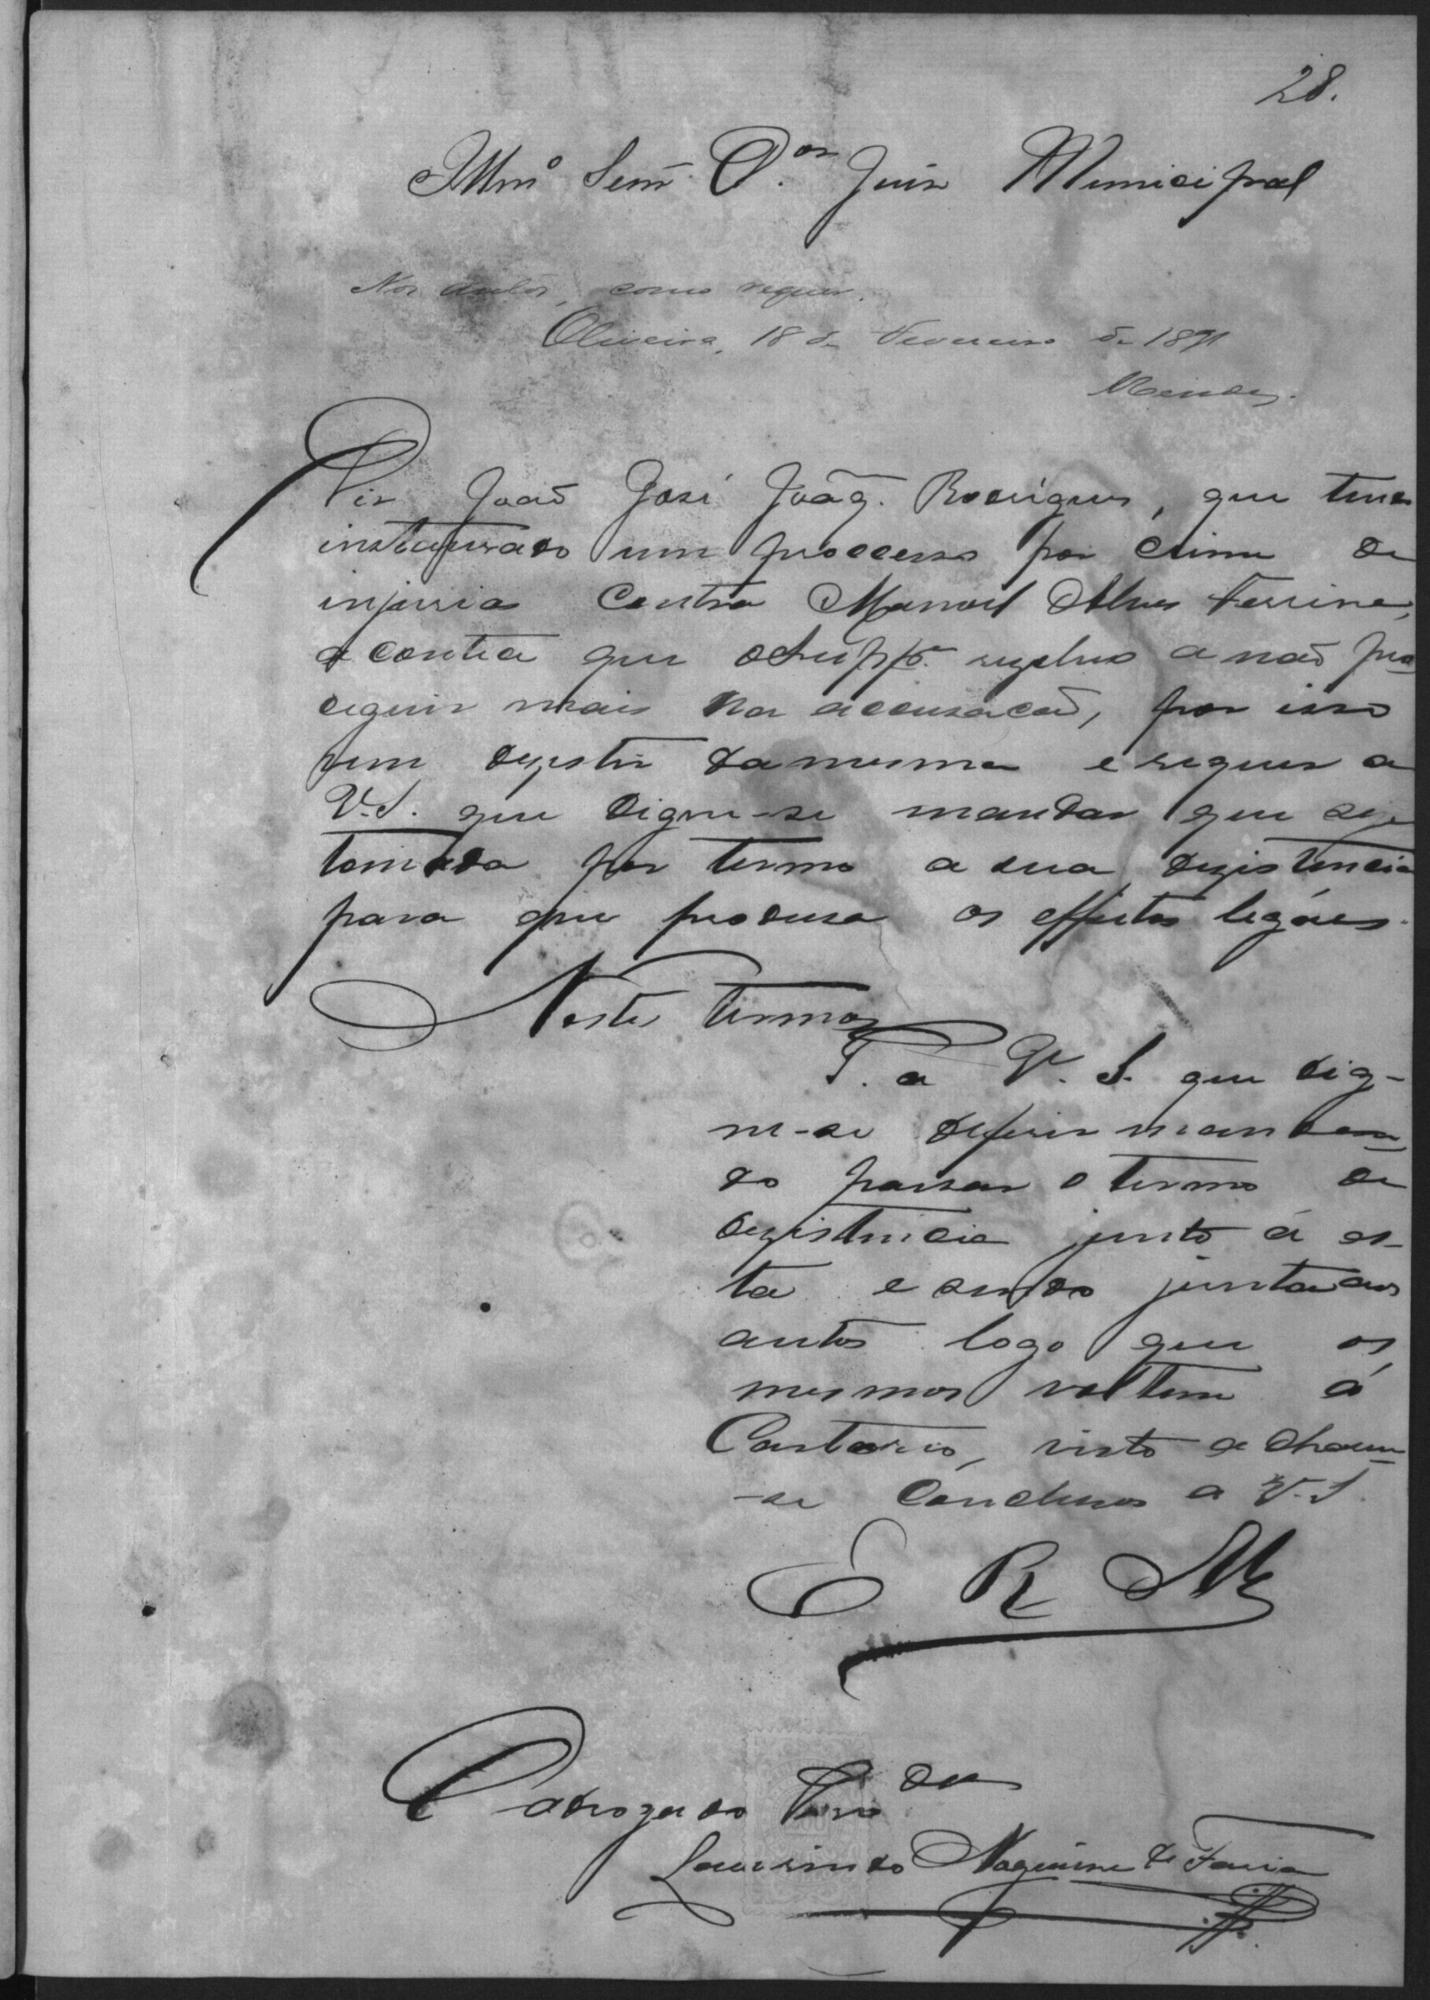 28.
Illmº Senr. Dor. Juis Municipal
Nos autos, como requer.
Oliveira, 18 de Fevereiro de 1891
Mendes.
Diz João José Joaq. Rodrigues, que tendo
instaurado um processo por crime de
injuria contra Manoel Alves
contra que o Suppe. a não pro
ceguir mais na accusacão, por isso
vem dezistir da mesma e requer a
V.S. que digne-se mandar que seja
tomada por termo a sua dezistencia
para que produsa os effeitos legáes.
Nestes Termos
P. a V. S. que dig-
ne-se deferir mandan
do passar o termo de
dezistencia junto á es-
ta e sendo junta aos
autos logo que os
mesmos voltem á
Cartorio, visto acharem
-se conclusos a V.S.
E R Me
O advogado
Laurindo de Faria